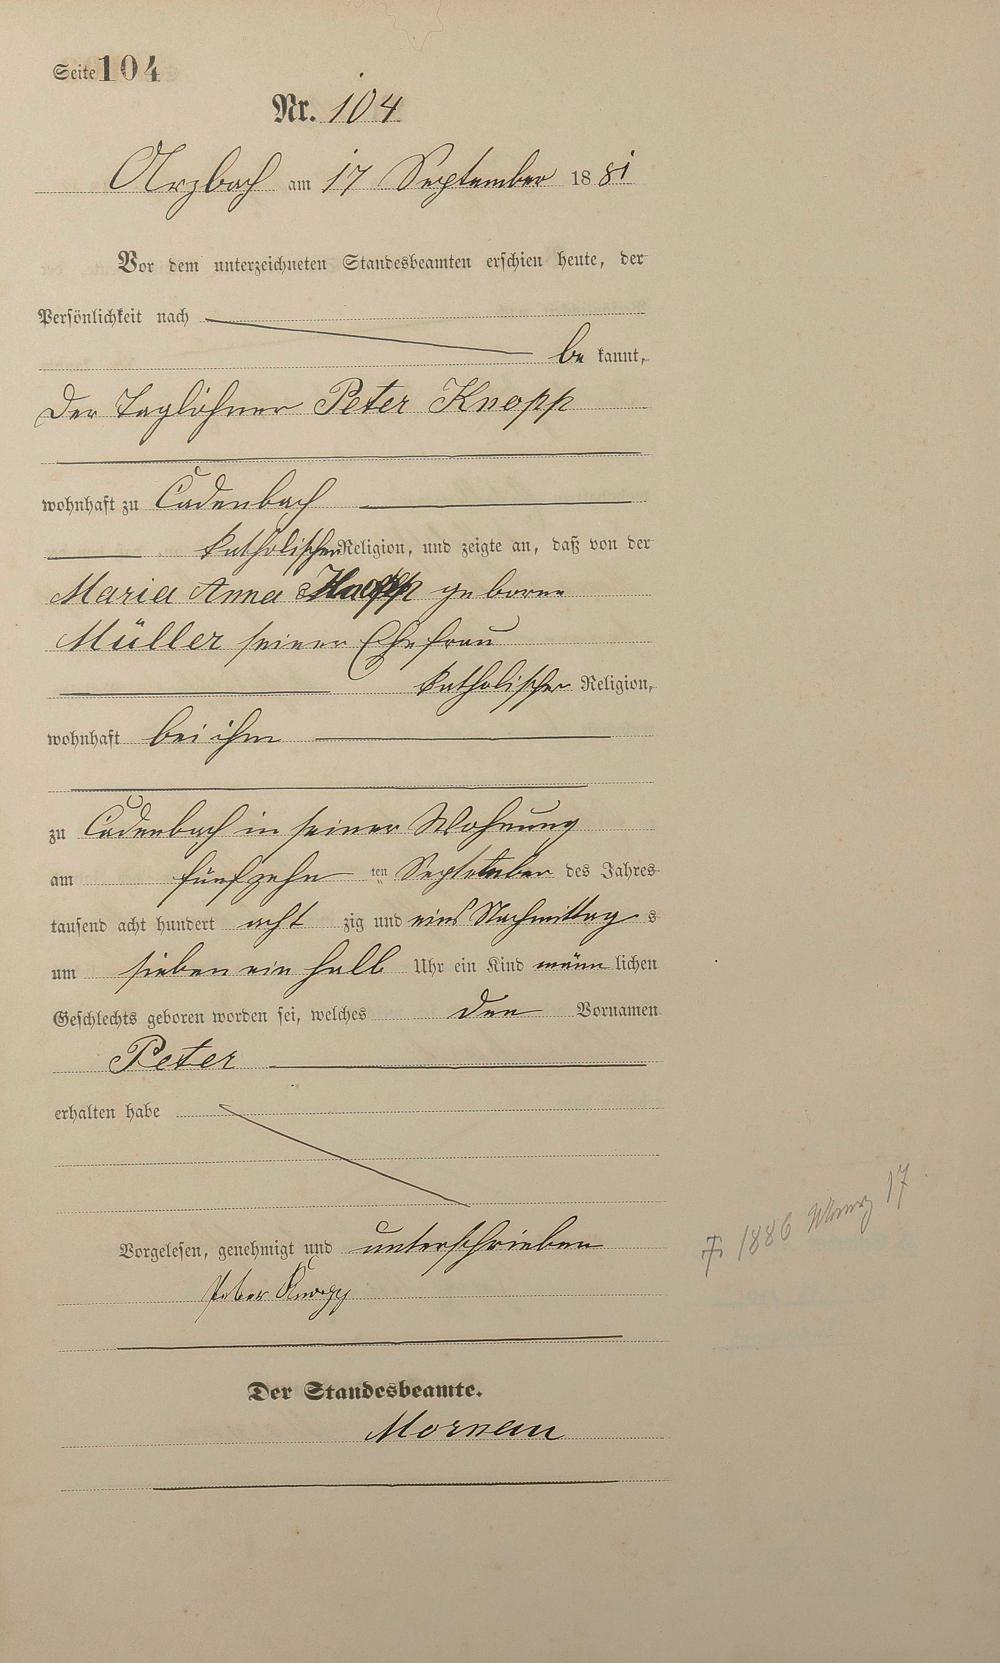 Seite 104
Nr. 104
Arzbach am 17 September 1881
Vor dem unterzeichneten Standesbeamten erschien heute, der
Persönlichkeit nach
be kannt,
der Taglöhner Peter Knopp
wohnhaft zu Cadenbach
katholischer Religion, und zeigte an, daß von der
Maria Anna Knopp geborne
Müller seiner Ehefrau
katholischer Religion,
wohnhaft bei ihm
zu Cadenbach in seiner Wohnung
am fünfzehn ten September des Jahres
tausend acht hundert acht zig und eins Nachmittag s
um sieben ein halb Uhr ein Kind männ lichen
Geschlechts geboren worden sei, welches den Vornamen
Peter
erhalten habe
Vorgelesen, genehmigt und unterschrieben
Peter Knopp
Der Standesbeamte.
† 1886 17